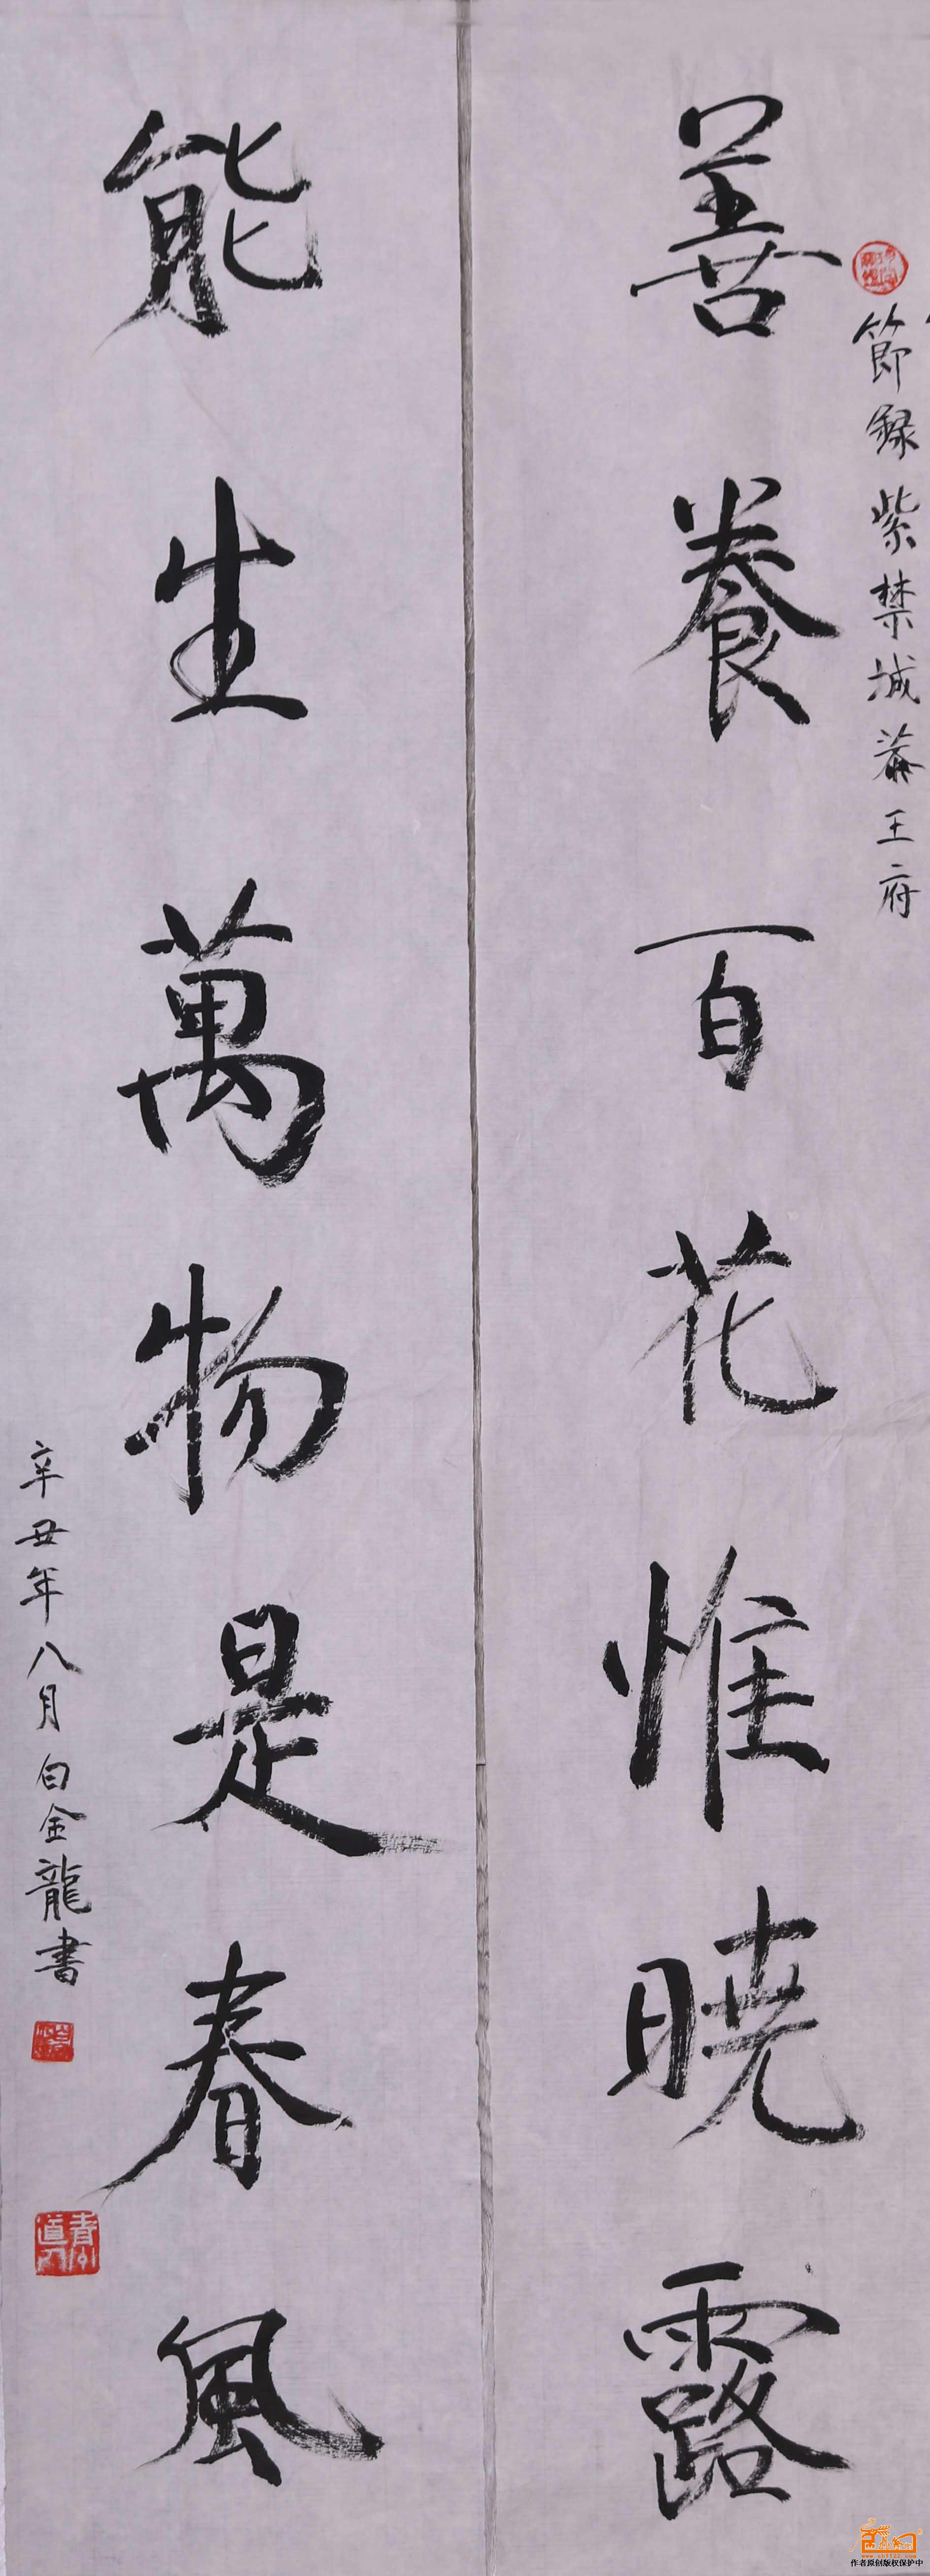 節録紫禁城恭王府
善養百花惟曉露
能生萬物是春風
辛丑年八月白金龍書
作者原创版权保护中